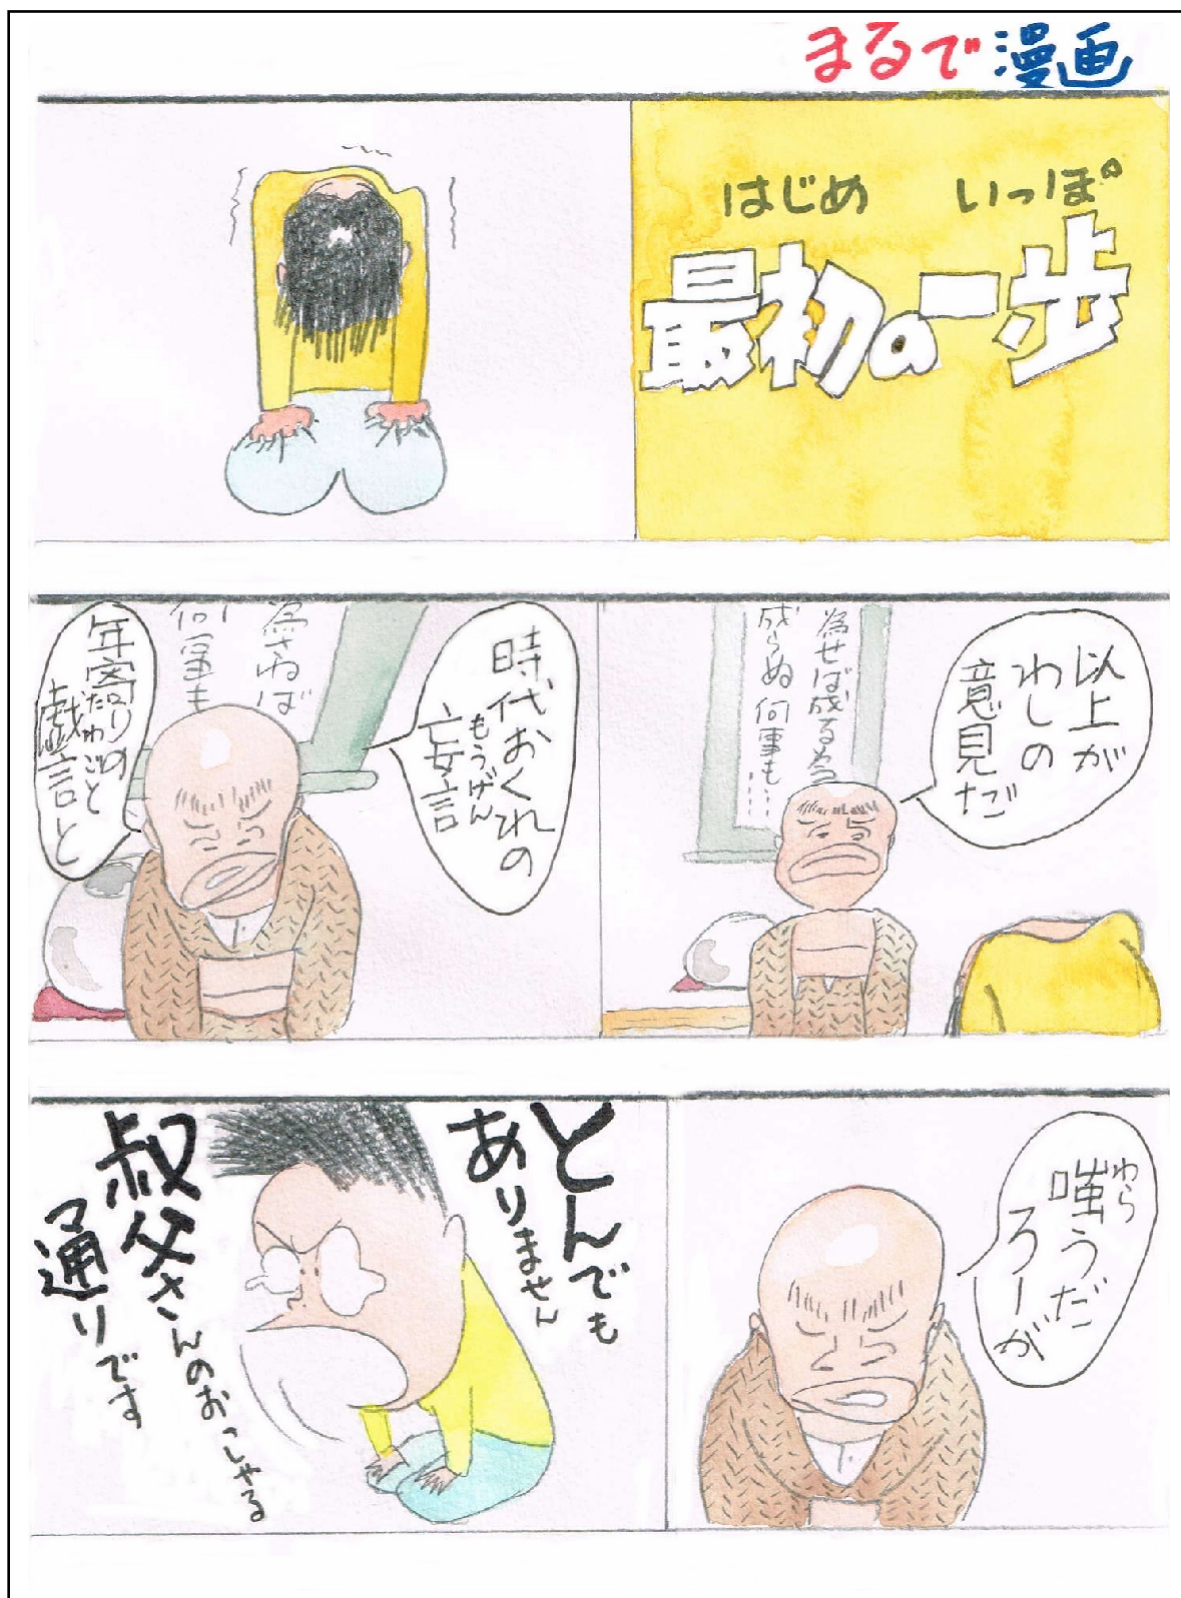 まるで漫画
はじめ いっぽ
最初の一歩
以上が
わしの
意見だ
為せば成る為
成らぬ何事も…
時代おくれの
もうげん
妄言
為さねば
何事も
年寄りの
たわごと
戯言と
わら
嗤うだ
ろーが
とんでも
ありません
叔父さんのおっしゃる
通りです